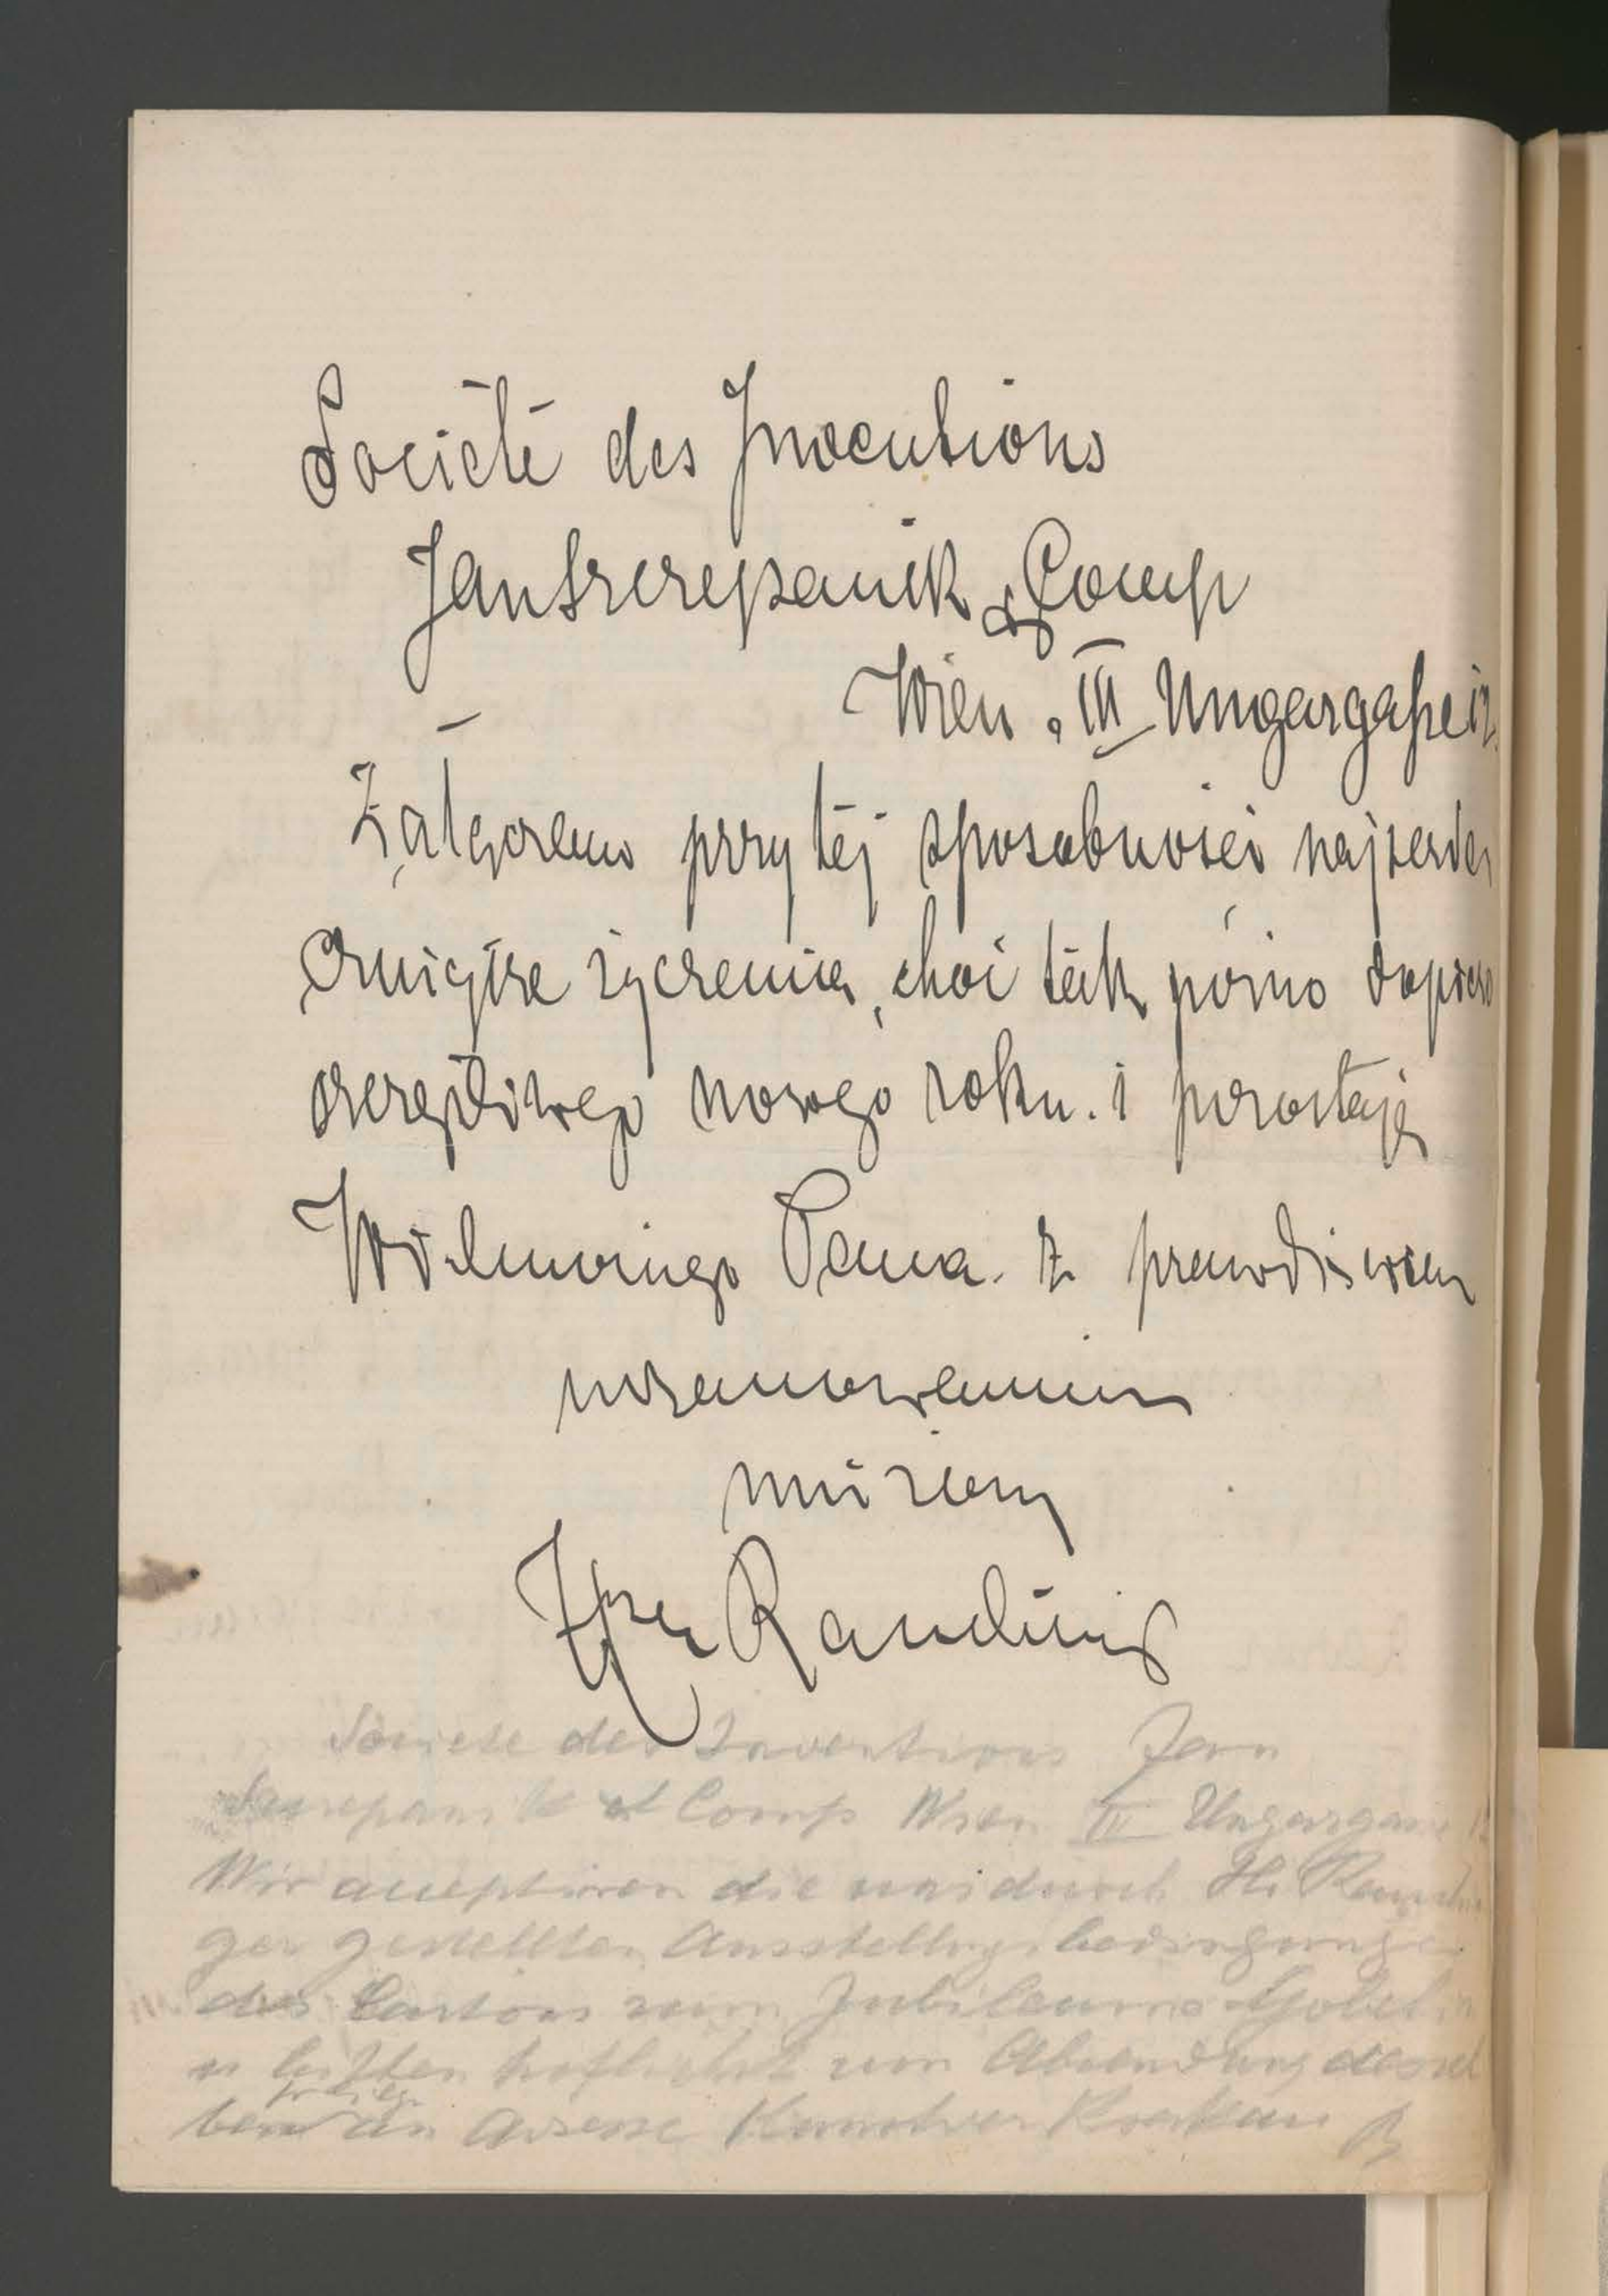 Société des Inventions
Jan Szczepanik & Comp
Wien, III Ungargaße 12.
Załączam przy tej sposobności najserde
czniejsze życzenia, choć tak późno dopiero
szczęśliwego nowego roku. i pozostaję
Wielmożnego Pana. z prawdziwem
uszanowaniem
uniżony
Rauchinger
Societe des Inventions Jan
Szczepanik et Comp Wien III Ungargasse 12
Wir acceptiren die uns durch H. Rauchin
ger gestellten Ausstellungsbedingungen
des Cartons zum Jubileums-Gobelin
u bitten höflichst um Absendung dessel
ben an Adresse Kunstver Krakau